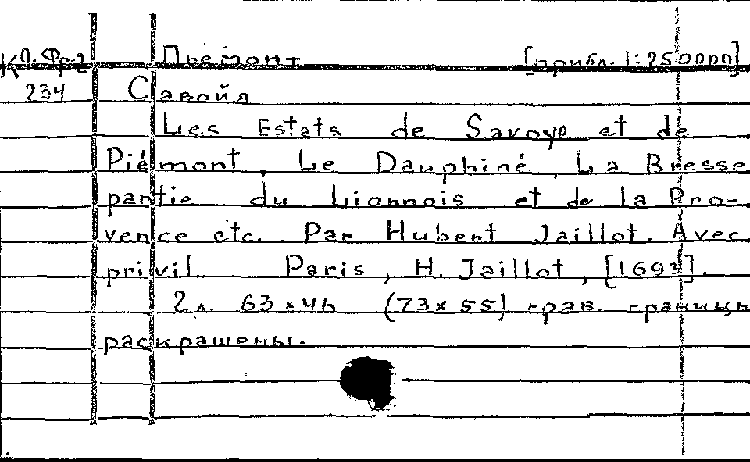 К П.Фр-2 Пьемонт [прибл. 1:250000]
234 Савойя
Les Estats de Savoye et de
Piémont, Le Dauphiné, La Bresse
partie du Lionnois et de la Pro-
vence etc. Par Hubert Jaillot. Avec
privil. Paris, H. Jaillot, [169].
2 л. 63×46 (73×55) грав. границы
раскрашены.